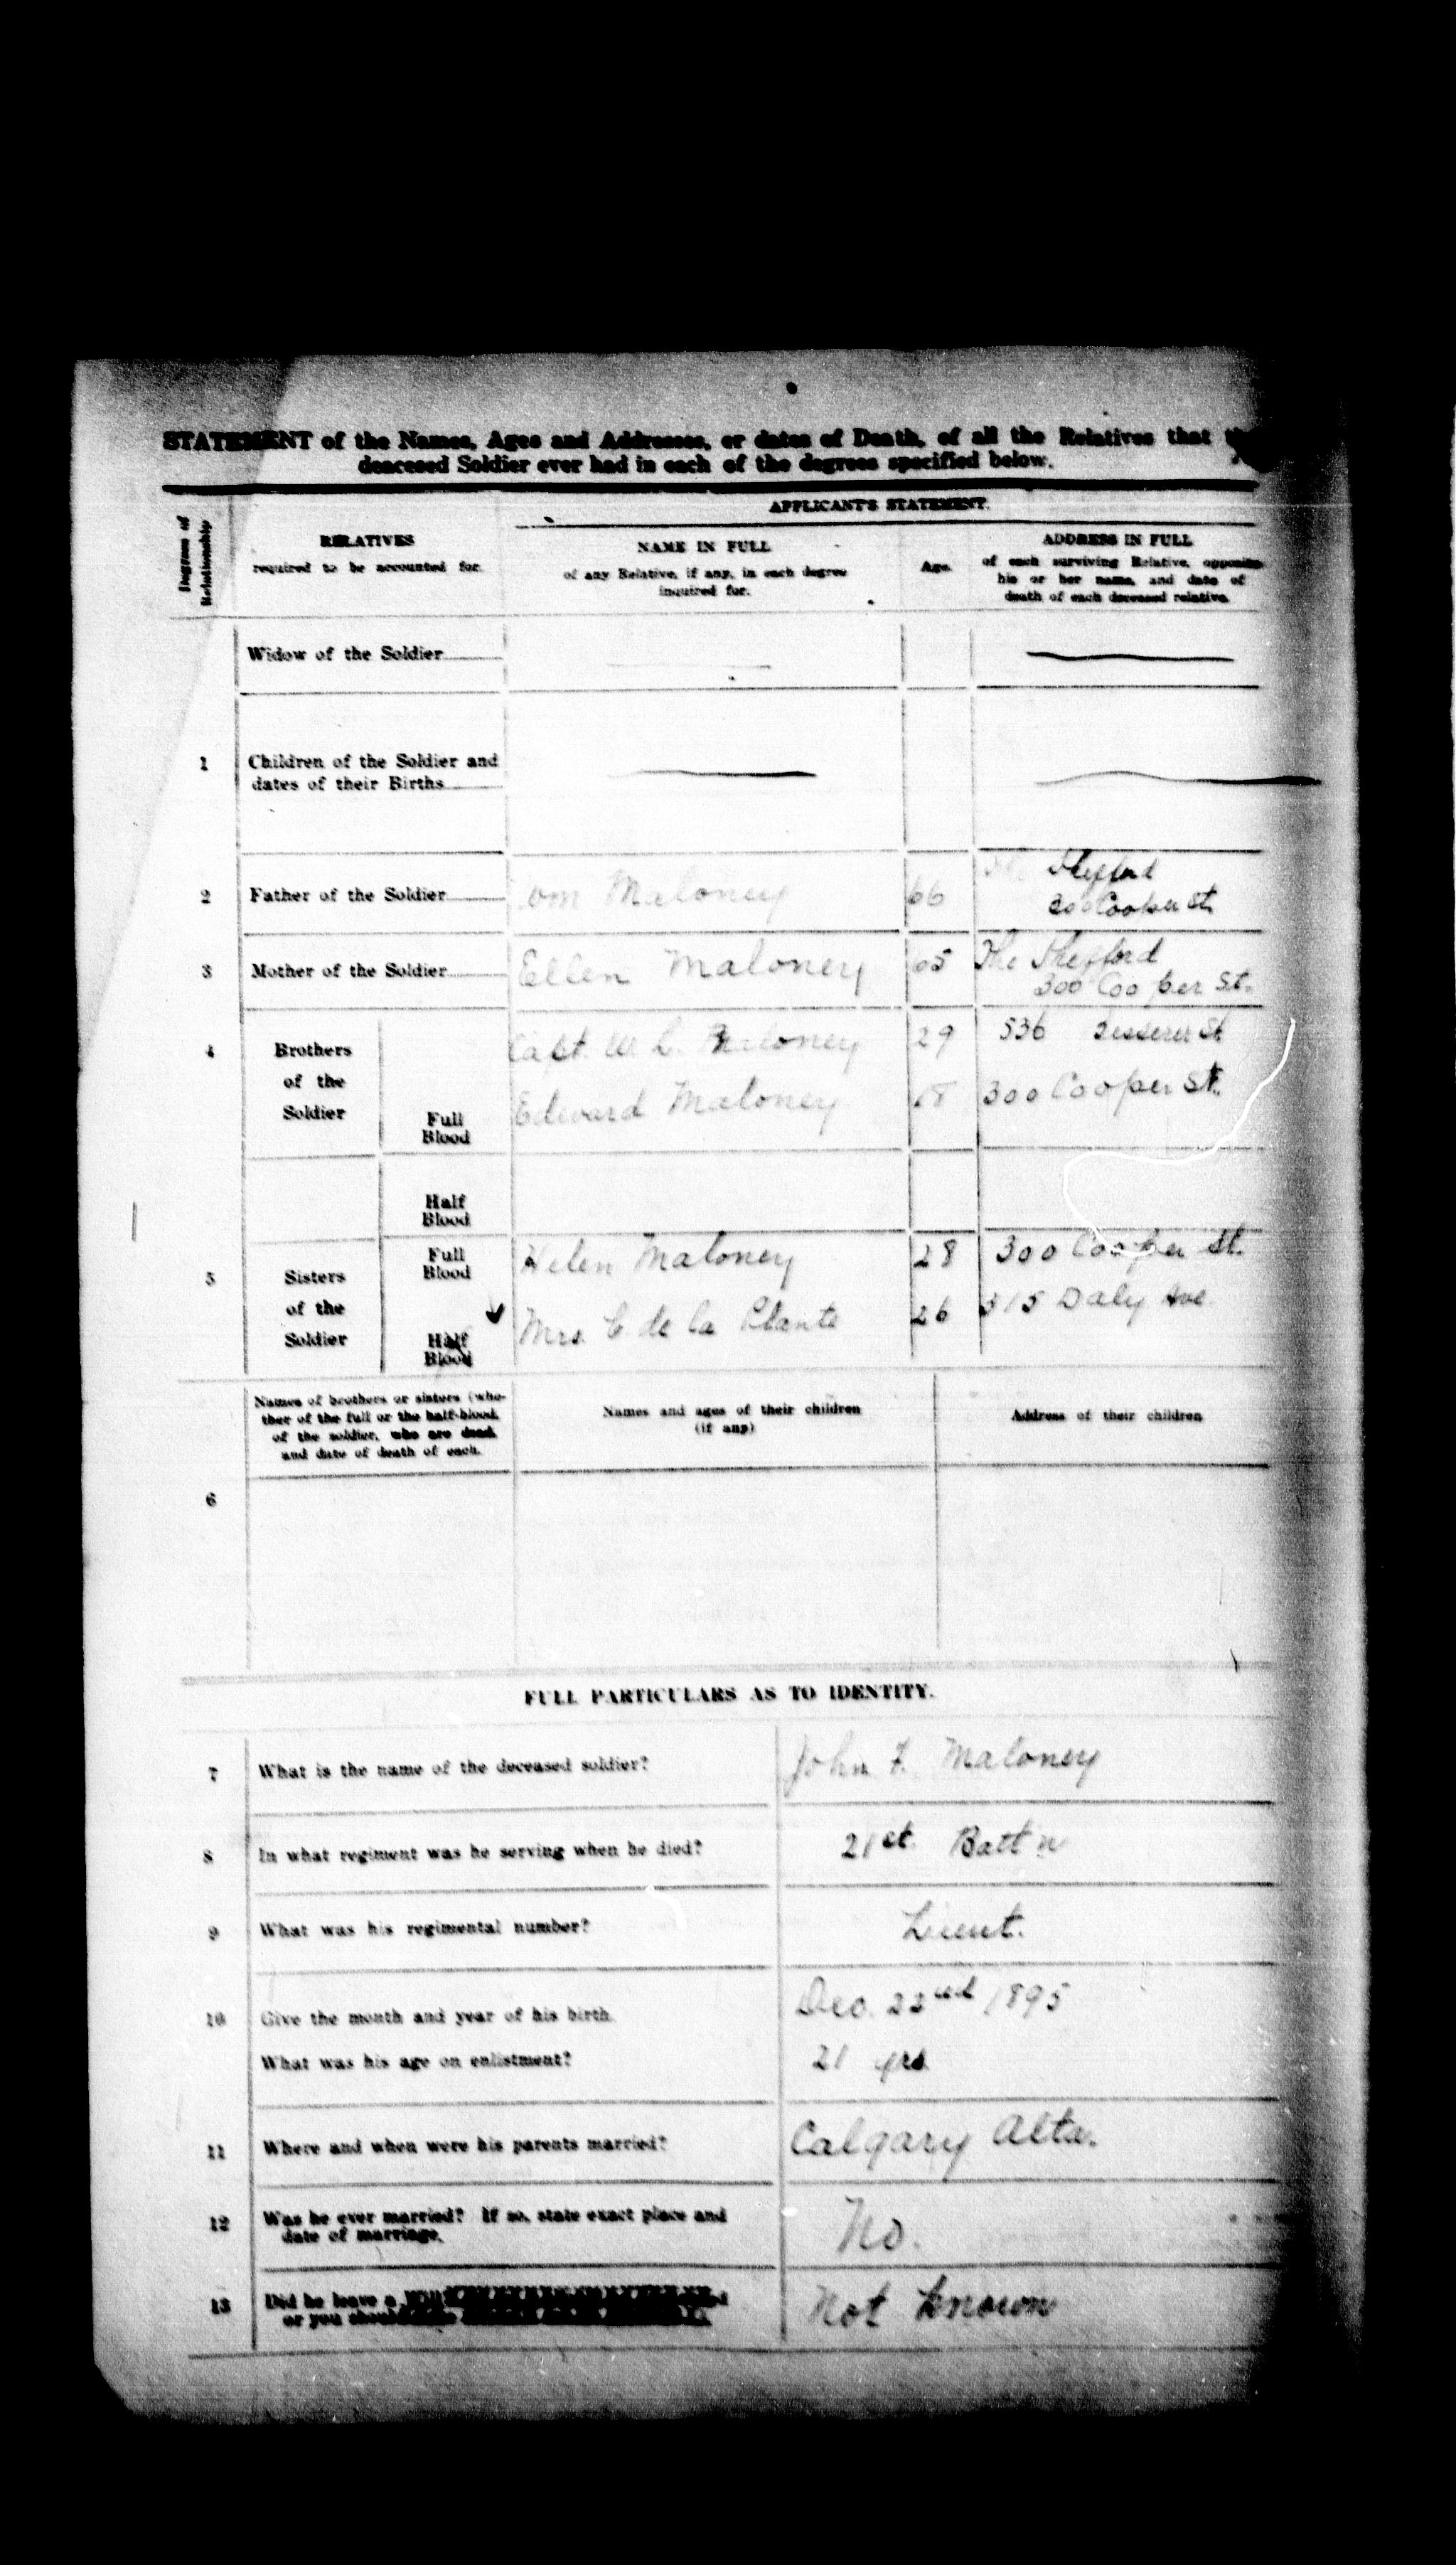 STATEMENT of the Names, Ages and Addresses, or dates of Death, of all the Relatives that
deceased Soldier ever had in each of the degrees specified below.
APPLICANT'S STATEMENT.
Degrees of
Relationship
RELATIVES
required to be accounted for.
NAME IN FULL
of any Relative, if any, in each degree
inquired for.
Age.
ADDRESS IN FULL
of each surviving Relative, opposite
his or her name, and date of
death of each deceased relative.
Widow of the Soldier
1 Children of the Soldier and
dates of their Births
2 Father of the Soldier Maloney 66
300 Cooper St.
3 Mother of the Soldier Ellen Maloney 65 The
300 Cooper St.
4 Brothers
of the
Soldier
Full
Blood
Capt. W L. Maloney 29 536 St
Edward Maloney 18 300 Cooper St.
Half
Blood
5 Sisters
of the
Soldier
Full
Blood
Helen Maloney 28 300 Cooper St.
Half
Blood
Mrs. C de la Plante 26 315 Daly Ave.
Names of brothers or sisters (whe-
ther of the full or the half-blood,
of the soldier, who are dead,
and date of death of each.
Names and ages of their children
(if any)
Address of their children
6
FULL PARTICULARS AS TO IDENTITY.
7 What is the name of the deceased soldier? John F. Maloney
8 In what regiment was he serving when he died? 21st. Batt'n
9 What was his regimental number? Lieut.
10 Give the month and year of his birth. Dec. 22nd 1895
What was his age on enlistment? 21 yrs.
11 Where and when were his parents married? Calgary Alta.
12 Was he ever married? If so, state exact place and
date of marriage. No.
13 Did he leave a Will
or you should Not known